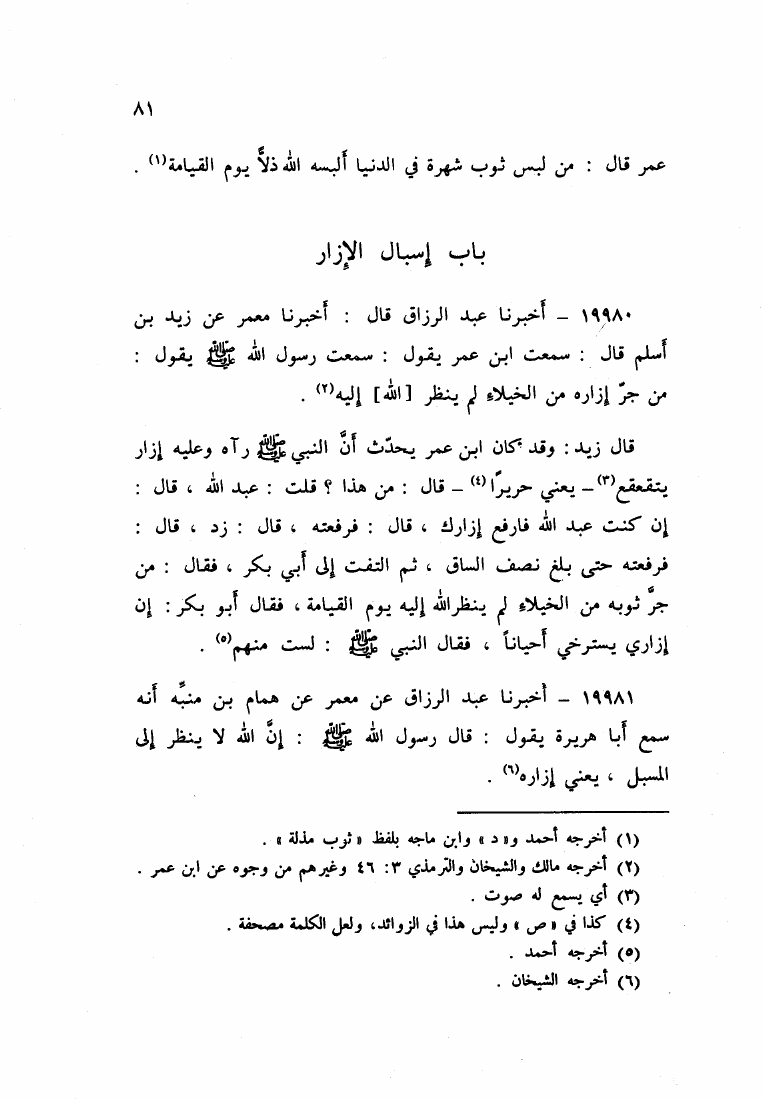 ٨١
عمر قال : من لبس ثوب شهرة في الدنيا أَلبسه الله ذلاًّ يوم القيامة(١) .
باب إسبال الإزار
١٩٩٨٠ - أَخبرنا عبد الرزاق قال : أَخبرنا معمر عن زيد بن
أَسلم قال : سمعت ابن عمر يقول : سمعت رسول الله ﷺ يقول :
من جرّ إزاره من الخيلاءِ لم ينظر [الله] إليه(٢) .
قال زيد : وقد كان ابن عمر يحدّث أَنَّ النبي ﷺ رآه وعليه إزار
يتقعقع(٣) - يعني حريرًا(٤) - قال : من هذا ؟ قلت : عبد الله ، قال :
إن كنت عبد الله فارفع إزارك ، قال : فرفعته ، قال : زد ، قال :
فرفعته حتى بلغ نصف الساق ، ثم التفت إلى أَبي بكر ، فقال : من
جرَّ ثوبه من الخيلاءِ لم ينظر الله إليه يوم القيامة ، فقال أَبو بكر : إن
إزاري يسترخي أَحياناً ، فقال النبي ﷺ : لست منهم(٥) .
١٩٩٨١ - أَخبرنا عبد الرزاق عن معمر عن همام بن منبِّه أَنه
سمع أَبا هريرة يقول : قال رسول الله ﷺ : إنَّ الله لا ينظر إلى
المسبل ، يعني إزاره(٦) .
(١) أخرجه أحمد و«د» وابن ماجه بلفظ «ثوب مذلة» .
(٢) أخرجه مالك والشيخان والترمذي ٣: ٤٦ وغيرهم من وجوه عن ابن عمر .
(٣) أي يسمع له صوت .
(٤) كذا في «ص» وليس هذا في الزوائد، ولعل الكلمة مصحفة .
(٥) أخرجه أحمد .
(٦) أخرجه الشيخان .